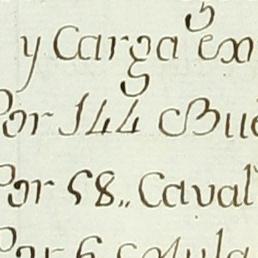 y Carga en
Por 144 Bue
Por 58,, Caval
Por 6